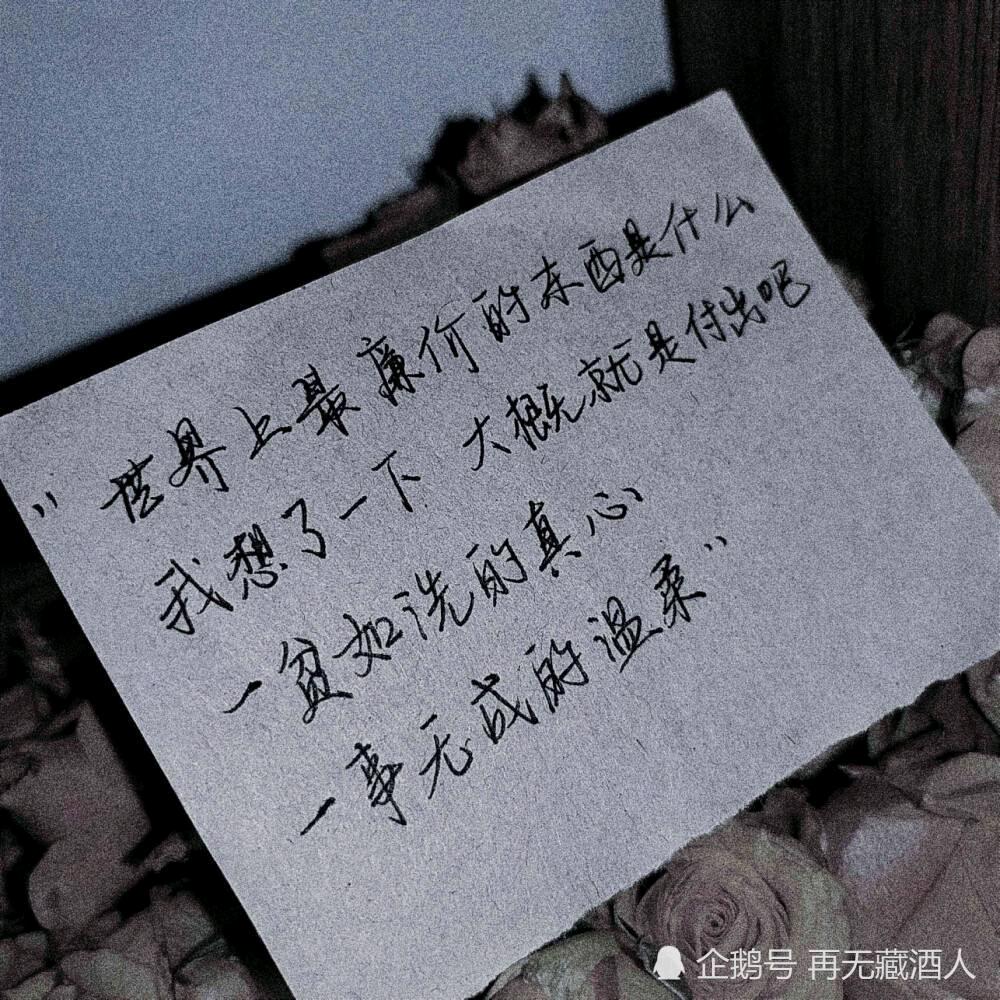 "世界上最廉价的东西是什么
我想了一下 大概就是付出吧
一贫如洗的真心
一事无成的温柔"
企鹅号 再无藏酒人